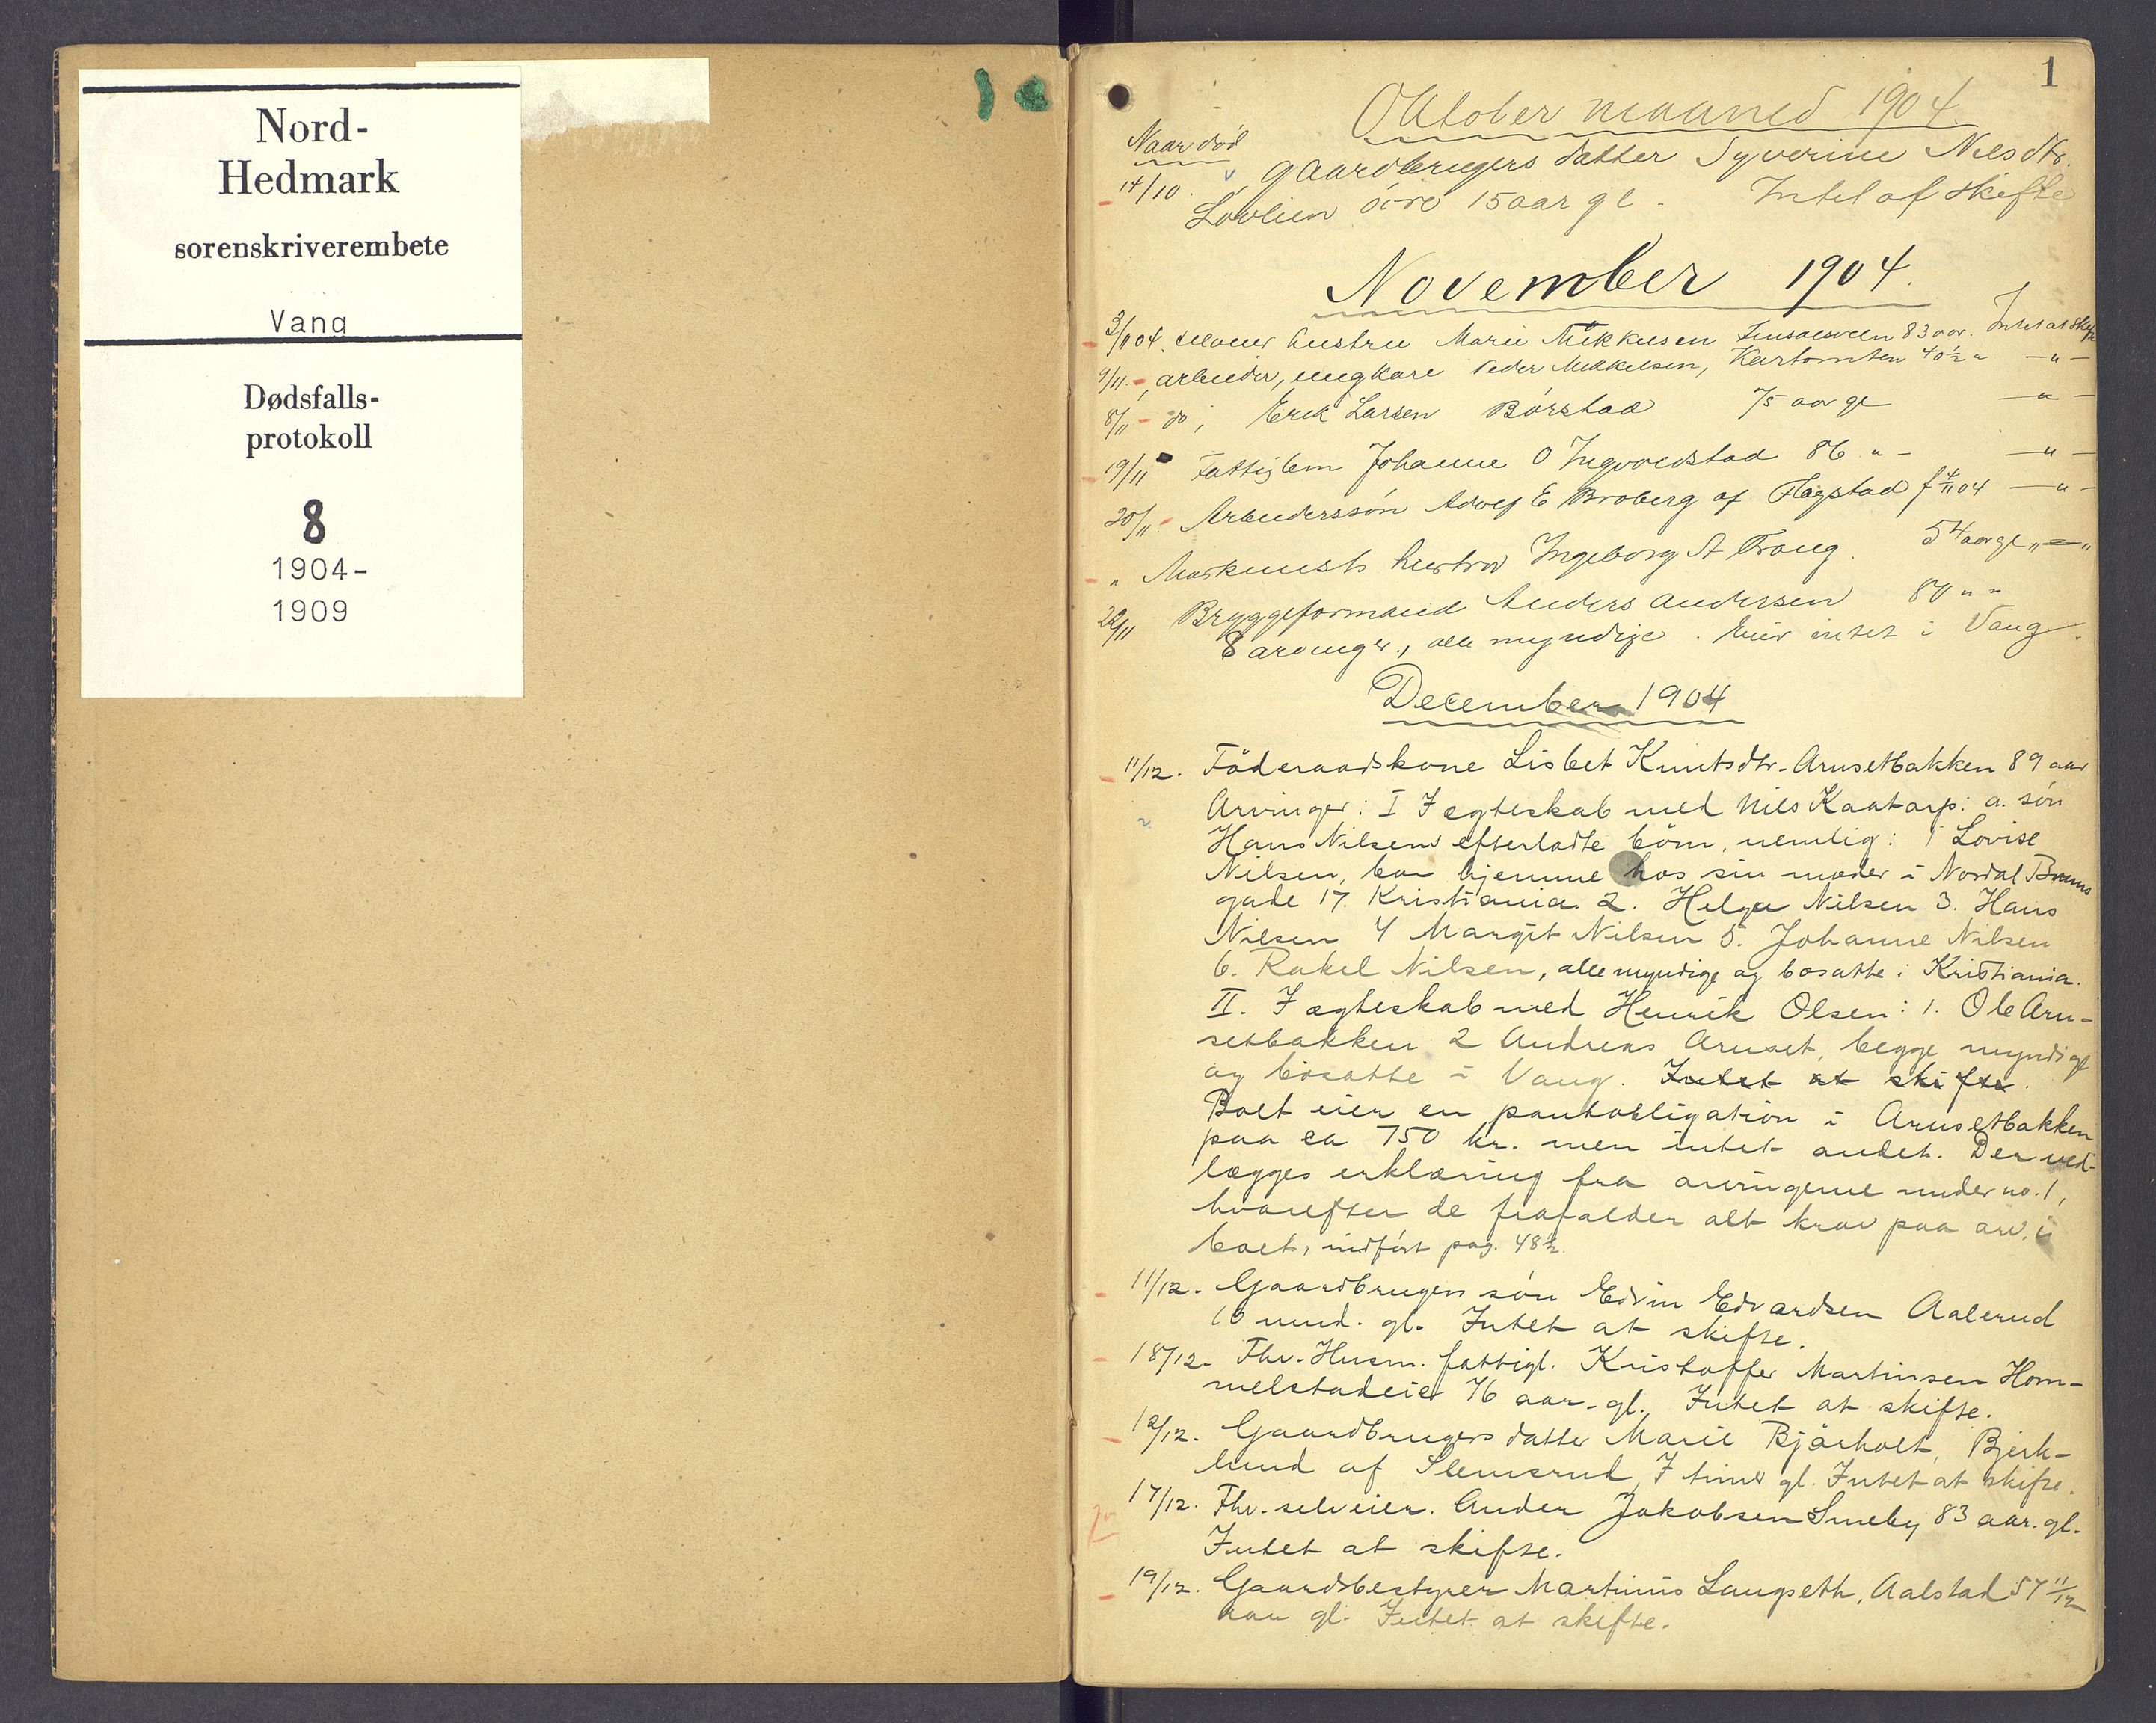 Nord-
Hedmark
sorenskriverembete
Vang
Dødsfalls-
protokoll
8
1904-
1909
1
Oktober maaned 1904.
Naar död
14/10 gaardbrugers datter Syverine Nilsdtr.
Lövlien öire 15 aar gl. Intet at skifte
November 1904.
3/11 04. selveier hustru Marie Mikkelsen 83 aar. Intet at skifte
9/11 -, arbeider, ungkare Peder Mikkelsen, 40½ " — " —
8/11 - do, Erik Larsen Börstad 75 aar gl — " —
19/11 Fattiglem Johanne O Ingvoldstad 86 " - — " -
20/11 - Arbeiderssön Adolf E Broberg af Flagstad f 4/11 04 — " -
" Maskinists hustru Ingeborg A Trong. 54 aar gl " — "
22/11 Bryggeformand Anders Andersen 80 " "
8 arvinger, alle myndige. Eier intet i Vang.
December 1904
11/12. Föderaadskone Lisbet Knutsdtr. Arnsetbakken 89 aar
Arvinger: I I egteskab med Nils Kaatorp: a. sön
Hans Nilsens efterladte börn, nemlig: 1 Lovise
Nilsen, bor hjemme hos sin moder i Nordal Bruns
gade 17. Kristiania. 2. Helga Nilsen 3. Hans
Nilsen 4 Margit Nilsen 5. Johanne Nilsen
6. Rakel Nilsen, alle myndige og bosatte i Kristiania.
II. I egteskab med Henrik Olsen: 1. Ole Arn-
setbakken 2 Andreas Arnset, begge myndige
og bosatte i Vang. Intet at skifte.
Boet eier en pantobligation i Arnsetbakken
paa ca 750 kr. men intet andet. Der ved-
lægges erklæring fra arvingerne under no. 1,
hvorefter de frafalder alt krav paa arv i
boet, indfört pag. 48½.
11/12. Gaardbrugers sön Edvin Edvardsen Aalerud
10 mnd. gl. Intet at skifte.
18/12. Fhv. Husm. fattigl. Kristoffer Martinsen Hom-
melstadeie 76 aar. gl. Intet at skifte.
12/12. Gaardbrugers datter Marie Bjärholt, Bjerk-
lund af Slemsrud, 7 timer gl. Intet at skifte.
17/12. Fhv. selveier. Anders Jakobsen Smeby 83 aar. gl.
Intet at skifte.
19/12. Gaardsbestyrer Martinius Langseth, Aalstad 57 11/12
aar gl. Intet at skifte.